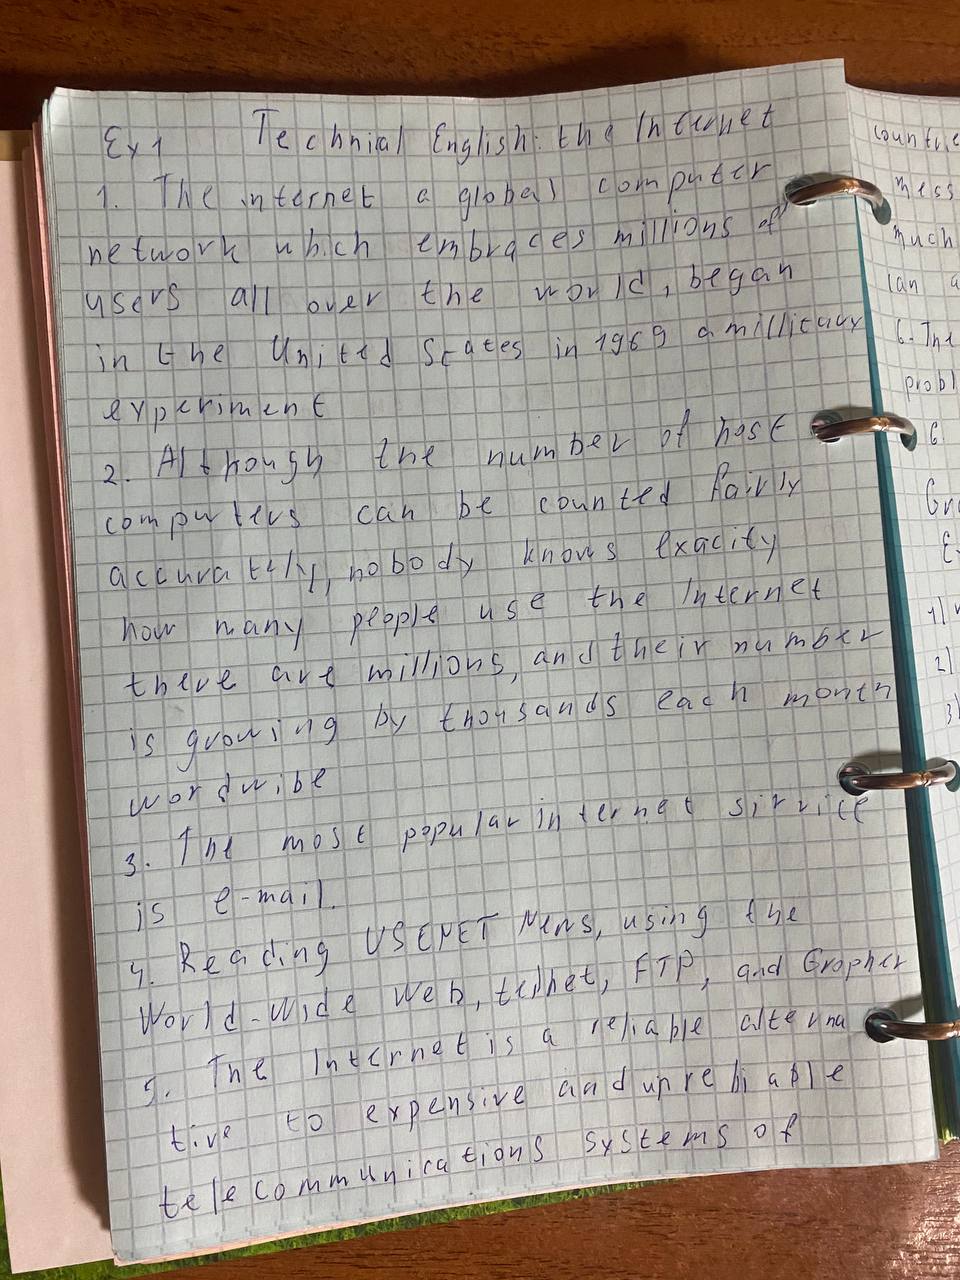 Ex1 Technical English: the Internet
1. The internet a global computer
network which embraces millions of
users all over the world, began
in the United States in 1969 a millitary
experiment
2. Although the number of host
computers can be counted fairly
accurately, nobody knows exacity
how many people use the Internet
there are millions, and their number
is growing by thousands each month
wordwibe
3. The most popular internet sirvice
is e-mail.
4. Reading USENET News, using the
World-Wide Web, telnet, FTP, and Gropher
5. The Internet is a reliable alterna
tive to expensive and upreliable
telecommunications systems of
countrie
mess
much
can a
6. The
probl
6.
Gra
Ex
1)
2)
3)